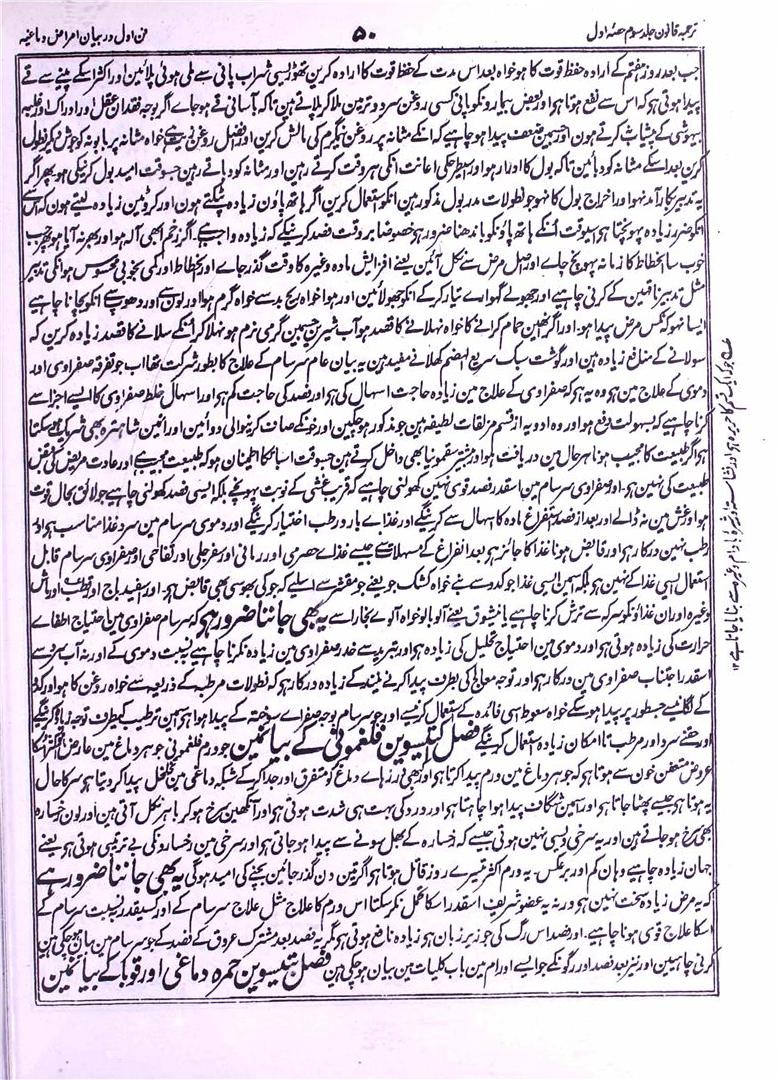 ترجمہ قانون جلد سوم حصّہ اول
۵۰
فن اول در بیان امراض دماغیہ
جب بعد روز ہفتم کے ارادہ حفظ قوت کا ہو خواہ بعد اس مدت کے حفظ قوت کا ارادہ کرین تھوڑی سی شراب پانی سے ملی ہوئی پلائین اور اکثر اسکے پینے سے قے
پیدا ہوتی ہو کہ اس سے نفع ہوتا ہو اور بعض بیمارونکو پانی کسی روغن سرد و تر مین ملا کر پلاتے ہین تاکہ بآسانی قے ہو جاے اگر بوجہ فقدان عقل اور ادراک اور غلبہ
بیہوشی کے پیشاب کرتے ہون اور سمین ضعف پیدا ہو چاہیے کہ انکے مثانہ پر روغن نیمگرم کی مالش کرین اور افضل روغن خواہ مثانہ پر بابونہ کو جوش دیکر نطول
کرین بعد اسکے مثانہ کو دبائین تاکہ بول کا ادرار ہو اور اسیطرحکی اعانت انکی ہر وقت کرتے رہین اور مثانہ کو دباتے رہین جسوقت امید بول کرنیکی ہو پھر اگر
یہ تدبیر کارآمد نہو اور اخراج بول کا نہو جو نطولات مدر بول مذکور ہین انکو استعمال کرین اگر ہاتھ پاؤن زیادہ پٹکتے ہون اور کروٹین زیادہ لیتے ہون کہ اس سے
انکو ضرر زیادہ پہونچتا ہو سیوقت انکے ہاتھ پاؤنکو باندھنا ضرور ہو خصوصاً بر وقت فصد کرنیکے کہ زیادہ واجب ہے اگر زخم ابھی آلہ ہو اور بھر نہ آیا ہو پھر جب
خوب سا انحطاط کا زمانہ پہونچ جاے اور اصل مرض سے نکل آئین یعنے افزایش مادہ وغیرہ کا وقت گذر جاے اور انحطاط اور کمی بخوبی محسوس ہو انکی تدبیر
مثل تدبیر ناقہین کے کرنی چاہیے اور جھولے گہوارے تیار کرکے انکو جھولائین اور ہوا خواہ گرم ہوا اور لون سے اور دھوپ سے انکو بچانا چاہیے
ایسا نہو کہ نکس مرض پیدا ہو اور اگر انھین حمام کرانے کا خواہ نہلانے کا قصد ہو آب شیرین جسمین گرمی نرم ہو نہلا کر انکے سلانے کا قصد زیادہ کرین کہ
سولانے کے منافع زیادہ ہین اور گوشت سبک سریع الہضم کھلانے مفید ہین یہ بیان عام سرسام کے علاج کا بطور شرکت تھا اب جو تفرقہ صفراوی اور
دموی کے علاج مین ہو وہ یہ ہو کہ صفراوی کے علاج مین زیادہ حاجت اسہال کی ہو اور فصد کی حاجت کم ہو اور اسہال خلط صفراوی کا ایسے اجزا سے
کرنا چاہیے کہ بسہولت دفع ہو اور وہ ادویہ از قسم مزلقات لطیفہ ہین جو مذکور ہو چکین اور خونکے صاف کرنیوالی دوائین اور انمین شاہترہ بھی شریک ہو سکتا
ہو اگر طبیعت کا مجیب ہونا ہر حال مین دریافت ہو اور بیشتر سقمونیا بھی داخل کرتے ہین جسوقت اسبات کا اطمینان ہو کہ طبیعت مجیب ہے اور عادت مریض کی
طبیعت کی نہین ہو۔ اور صفراوی سرسام مین اسقدر فصد قوی نہین کھولنی چاہیے کہ قریب غشی کے نوبت پہونچے بلکہ ایسی فصد کھولنی چاہیے جو لائق بحال قوت
ہو اور غش مین نہ ڈالے اور بعد از فصد استفراغ مادہ کا اسہال سے کرینگے اور غذاے بارد رطب اختیار کرینگے اور دموی سرسام مین سرد غذا مناسب ہو اور
رطب نہین درکار ہو اور قابض ہونا غذا کا جائز ہو بعد انفراغ کے مسہلات سے جیسے غذاے حصرمی اور ربانی اور سفرجلی اور تفاحی اور صفراوی سرسام قابل
استعمال ایسی غذا کے نہین ہو بلکہ اسمین ایسی غذا جو کدو سے بنے خواہ کشک جو یعنے جو مقشر سے اسلیے کہ جو کی بھوسی بھی قابض ہو۔ اور اسفید باج اور قطف اور ماش
وغیرہ اور ان غذاؤنکو سرکہ سے ترش کرنا چاہیے یا نیشوق یعنے آلو بالو خواہ آلوے بخارا سے یہ بھی جاننا ضرور ہو کہ سرسام صفراوی مین احتیاج اطفاے
حرارت کی زیادہ ہوتی ہو اور دموی مین احتیاج تحلیل کی زیادہ ہو اور تبرید سے خدر صفراوی مین زیادہ نکرنا چاہیے بنسبت دموی کے اور نہ آب سرد سے
اسقدر اجتناب صفراوی مین درکار ہو اور توجہ معالج کی بطرف پیدا کرنے نیند کے زیادہ درکار ہو کہ نطولات مرطبہ کے ذریعہ سے خواہ روغن کا ہو اور کدو
کے لگانیسے جسطور پر پیدا ہو سکے خواہ سعوط اسی فائدہ کے استعمال کرنیسے اور جو سرسام بوجہ صفراے سوختہ کے پیدا ہو اسمین ترطیب کیطرف توجہ زیادہ کرینگے
اور حقنے سرد اور مرطب تا امکان زیادہ استعمال کرینگے فصل اکیسوین فلغمونی کے بیانمین جو ورم فلغمونی جوہر دماغ مین عارض ہو اکثر اسکا
عروض متعفن خون سے ہوتا ہو کہ جوہر دماغ مین ورم پیدا کرتا ہو اور بھی درزہاے دماغ کو متفرق اور جدا کرکے شبکہ دماغی مین تخلخل پیدا کر دیتا ہو سر کا حال
یہ ہوتا ہو جیسے پھٹا جاتا ہو اور اسمین شگاف پیدا ہوا چاہتا ہو اور درد کی بہت ہی شدت ہوتی ہو اور آنکھین سرخ ہو کر باہر نکل آتی ہین اور لون رخسارہ
بھی سرخ ہو جاتے ہین اور یہ سرخی ویسی نہین ہوتی جیسے کہ رخسارہ کے بھل سونے سے پیدا ہو جاتی ہو اور سرخی مین رخسارونکی بے ترتیبی ہوتی ہو یعنے
جہان زیادہ چاہیے وہان کم اور برعکس۔ یہ ورم اکثر تیسرے روز قاتل ہوتا ہو اگر تین دن گذر جائین بچنے کی امید ہوگی یہ بھی جاننا ضرور ہے
کہ یہ مرض زیادہ سخت نہین ہو ورنہ یہ عضو شریف اسقدر اسکا تحمل نکر سکتا اس ورم کا علاج مثل علاج سرسام کے اور کسیقدر بنسبت سرسام کے
اسکا علاج قوی ہونا چاہیے۔ اور فصد اس رگ کی جو زیر زبان ہو زیادہ نافع ہوتی ہو مگر یہ فصد بعد مشترک عروق کے فصد کے جو سرسام مین بیان ہو چکی ہین
کرنی چاہیین اور نیز بعد فصد اور رگونکے جو ایسے اورام مین باب کلیات مین بیان ہو چکی ہین فصل بیسوین حمرہ دماغی اور قوبا کے بیانمین